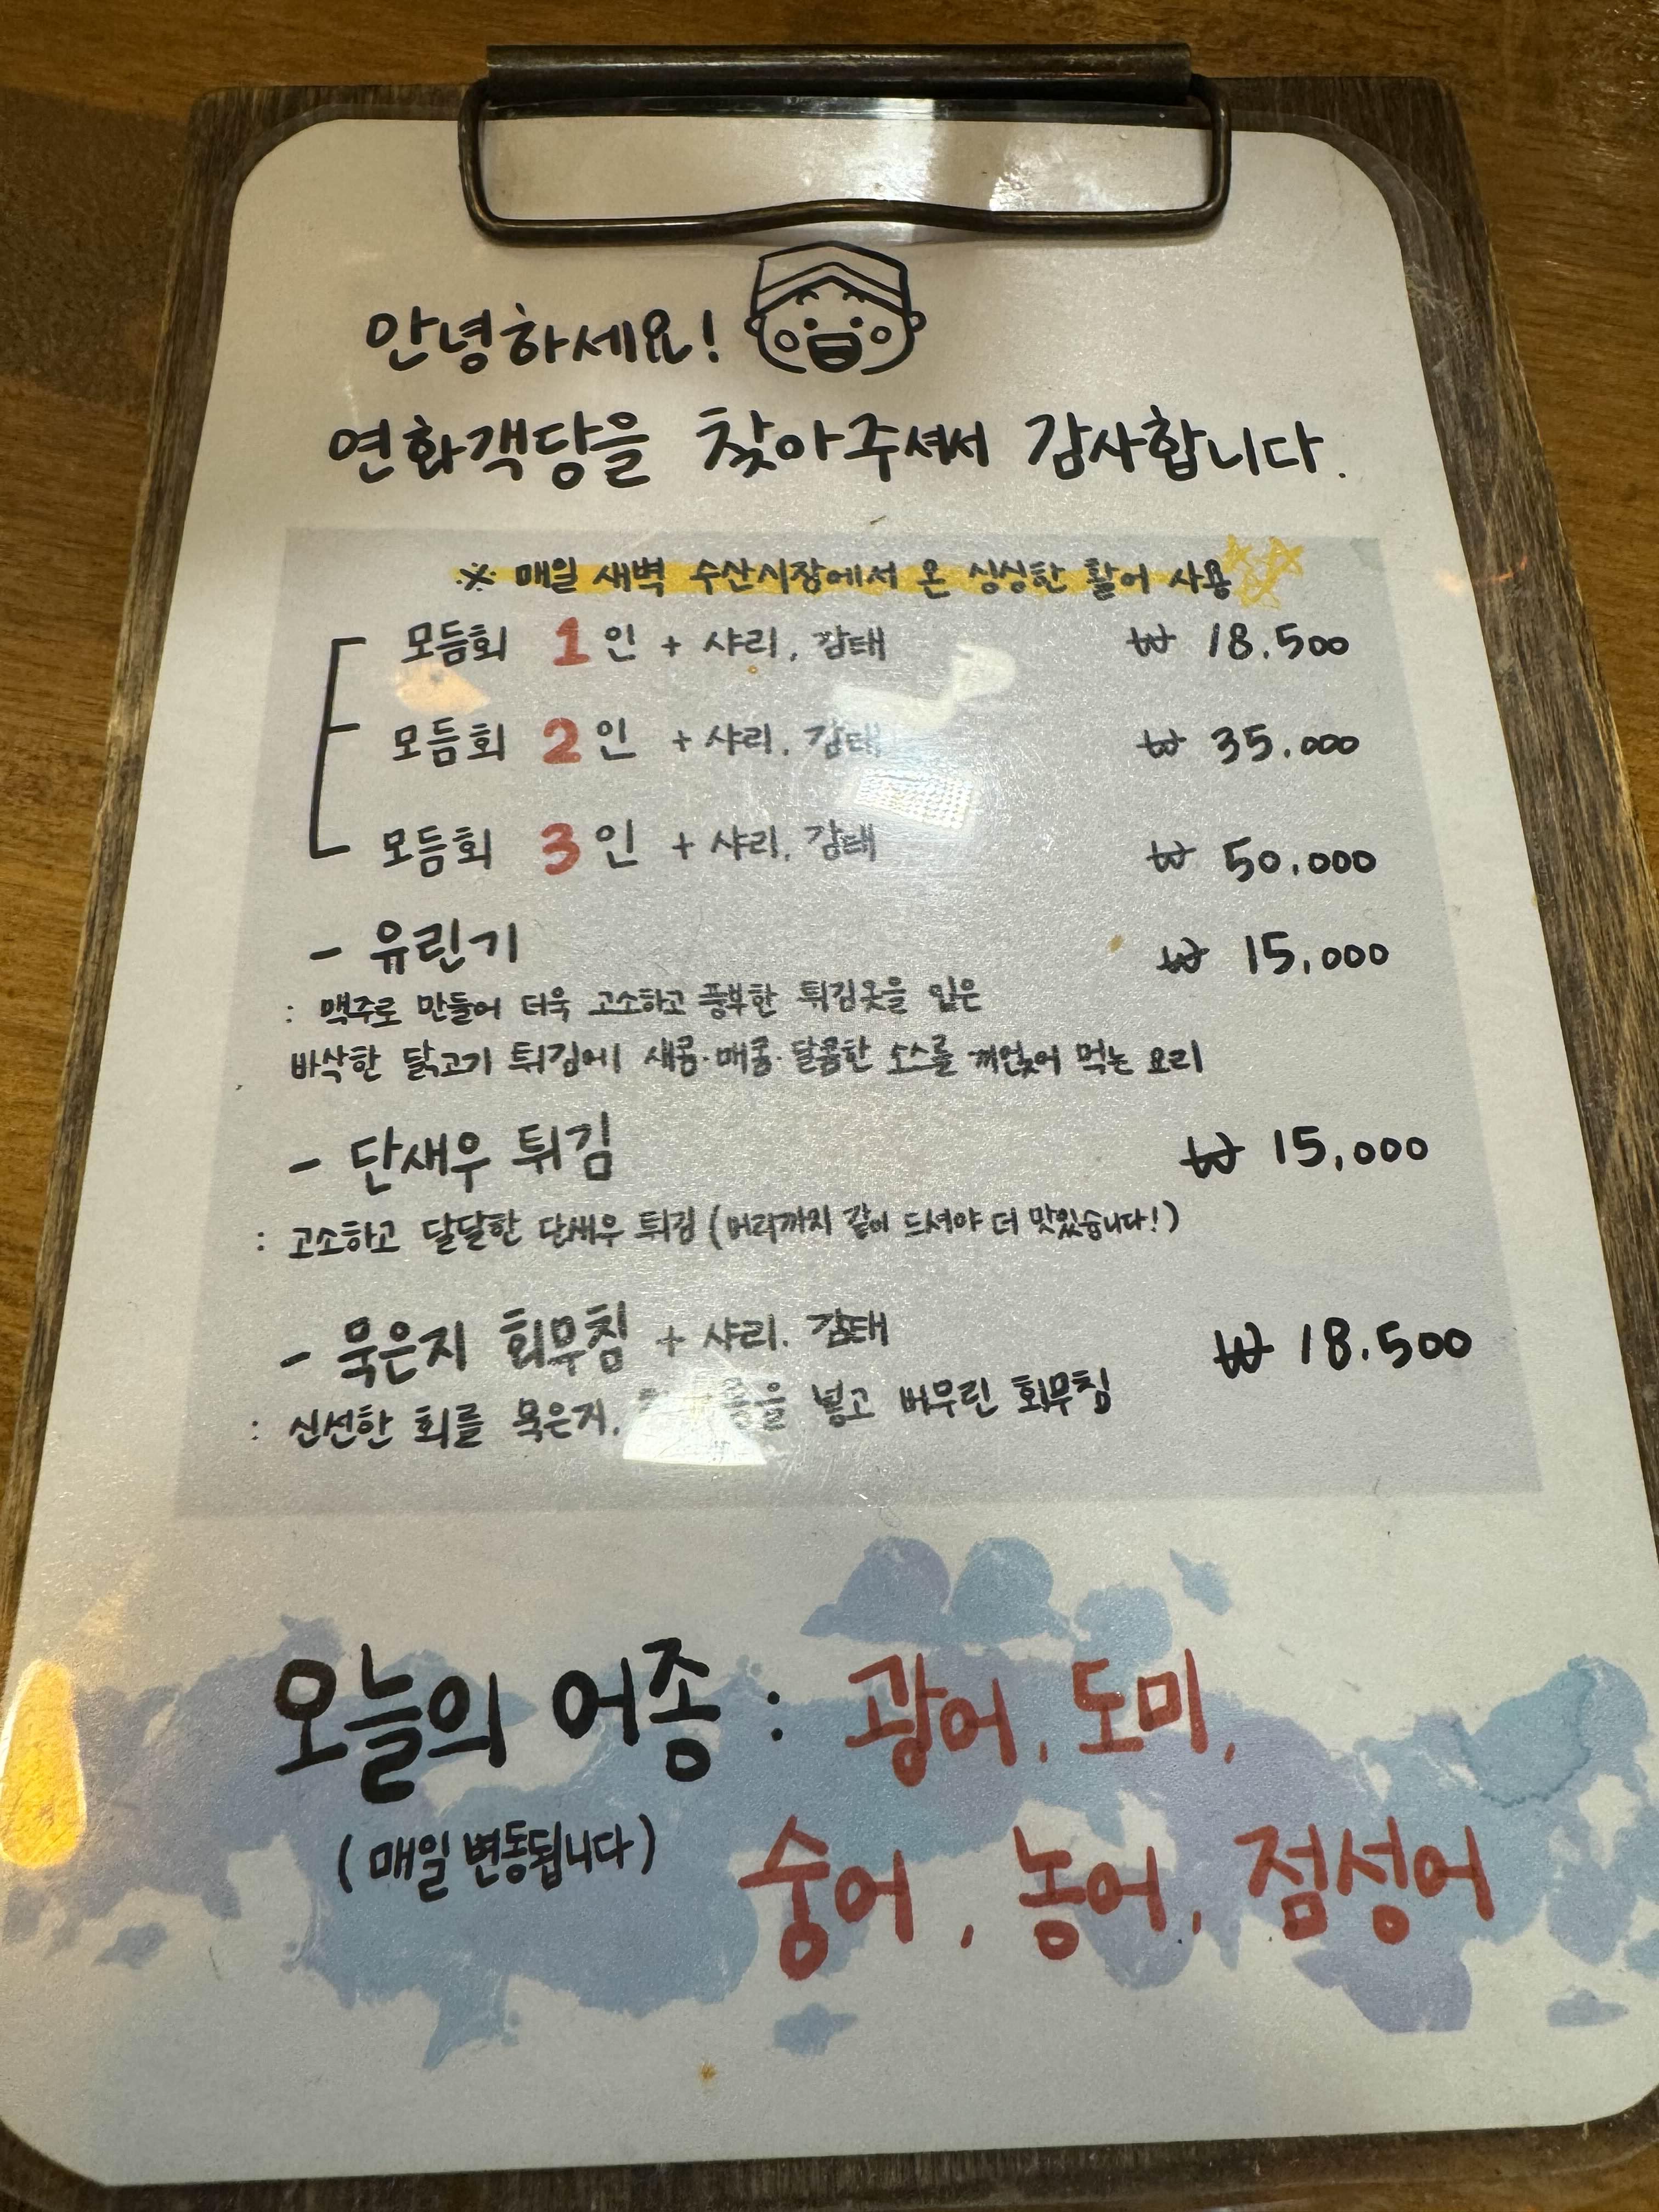 안녕하세요!
연화객당을 찾아주셔서 감사합니다.
※ 매일 새벽 수산시장에서 온 싱싱한 활어 사용
모듬회 1인 + 샤리, 감태 ₩ 18.500
모듬회 2인 + 샤리, 감태 ₩ 35.000
모듬회 3인 + 샤리, 감태 ₩ 50.000
- 유린기 ₩ 15,000
: 맥주로 만들어 더욱 고소하고 풍부한 튀김옷을 입은
바삭한 닭고기 튀김에 새콤·매콤·달콤한 소스를 끼얹어 먹는 요리
- 단새우 튀김 ₩ 15,000
: 고소하고 달달한 단새우 튀김 (머리까지 같이 드셔야 더 맛있습니다!)
- 묵은지 회무침 + 샤리. 감태 ₩ 18.500
: 신선한 회를 묵은지, 넣고 버무린 회무침
오늘의 어종 : 광어, 도미,
(매일 변동됩니다) 숭어, 농어, 점성어